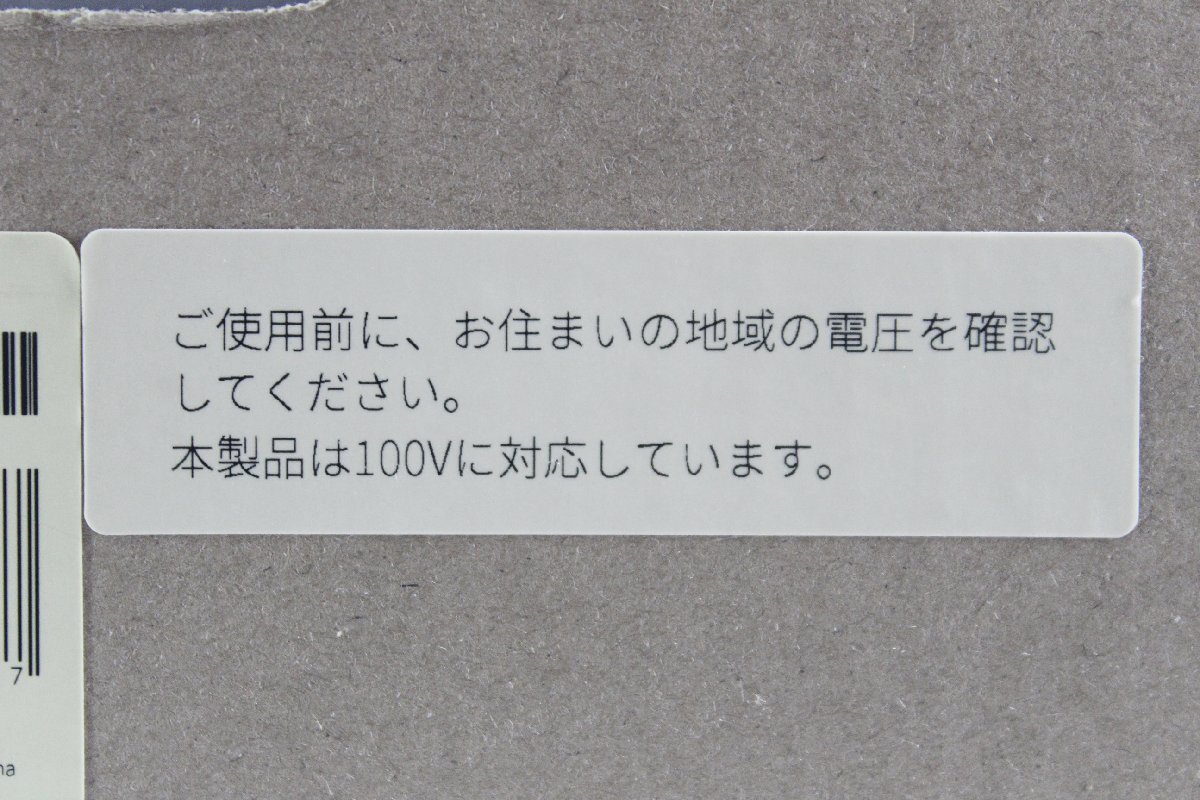 ご使用前に、お住まいの地域の電圧を確認
してください。
本製品は100Vに対応しています。
7
na